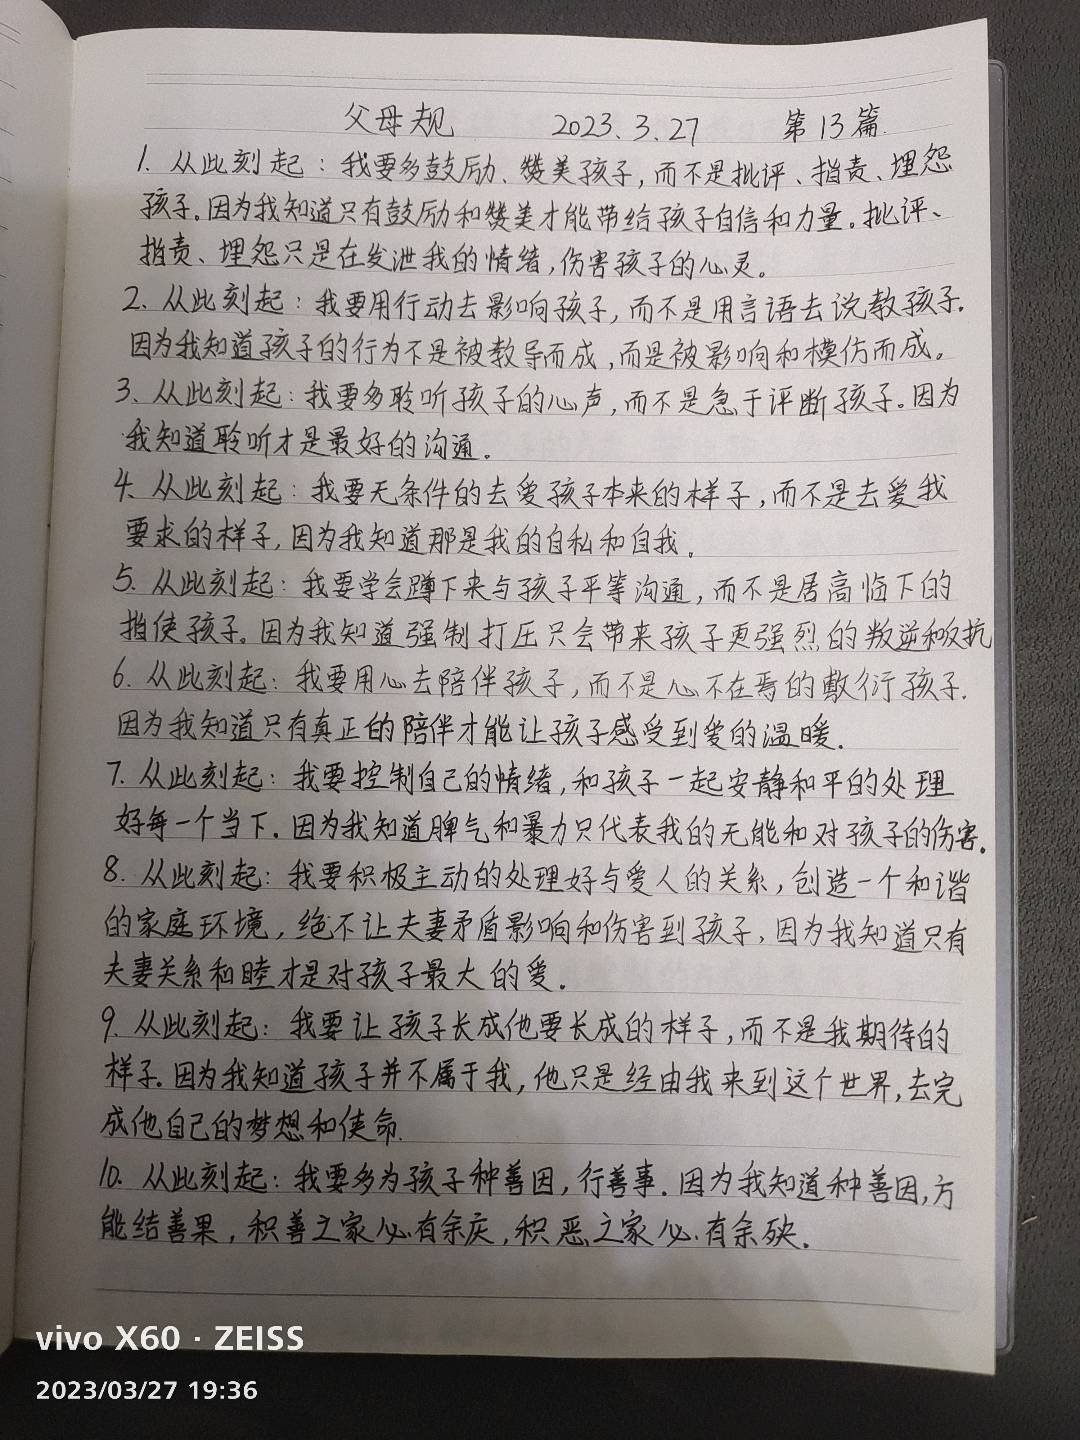 父母规 2023.3.27 第13篇.
1. 从此刻起：我要多鼓励、赞美孩子，而不是批评、指责、埋怨
孩子.因为我知道只有鼓励和赞美才能带给孩子自信和力量。批评、
指责、埋怨只是在发泄我的情绪，伤害孩子的心灵。
2. 从此刻起：我要用行动去影响孩子，而不是用言语去说教孩子.
因为我知道孩子的行为不是被教导而成，而是被影响和模仿而成。
3. 从此刻起：我要多聆听孩子的心声，而不是急于评断孩子.因为
我知道聆听才是最好的沟通。
4. 从此刻起：我要无条件的去爱孩子本来的样子，而不是去爱我
要求的样子，因为我知道那是我的自私和自我。
5. 从此刻起：我要学会蹲下来与孩子平等沟通，而不是居高临下的
指使孩子。因为我知道强制打压只会带来孩子更强烈的叛逆和反抗
6. 从此刻起：我要用心去陪伴孩子，而不是心不在焉的敷衍孩子.
因为我知道只有真正的陪伴才能让孩子感受到爱的温暖.
7. 从此刻起：我要控制自己的情绪，和孩子一起安静和平的处理
好每一个当下.因为我知道脾气和暴力只代表我的无能和对孩子的伤害.
8. 从此刻起：我要积极主动的处理好与爱人的关系，创造一个和谐
的家庭环境，绝不让夫妻矛盾影响和伤害到孩子，因为我知道只有
夫妻关系和睦才是对孩子最大的爱.
9. 从此刻起：我要让孩子长成他要长成的样子，而不是我期待的
样子.因为我知道孩子并不属于我，他只是经由我来到这个世界，去完
成他自己的梦想和使命.
10. 从此刻起：我要多为孩子种善因，行善事.因为我知道种善因，方
能结善果，积善之家必有余庆，积恶之家必有余殃.
vivo X60 · ZEISS
2023/03/27 19:36